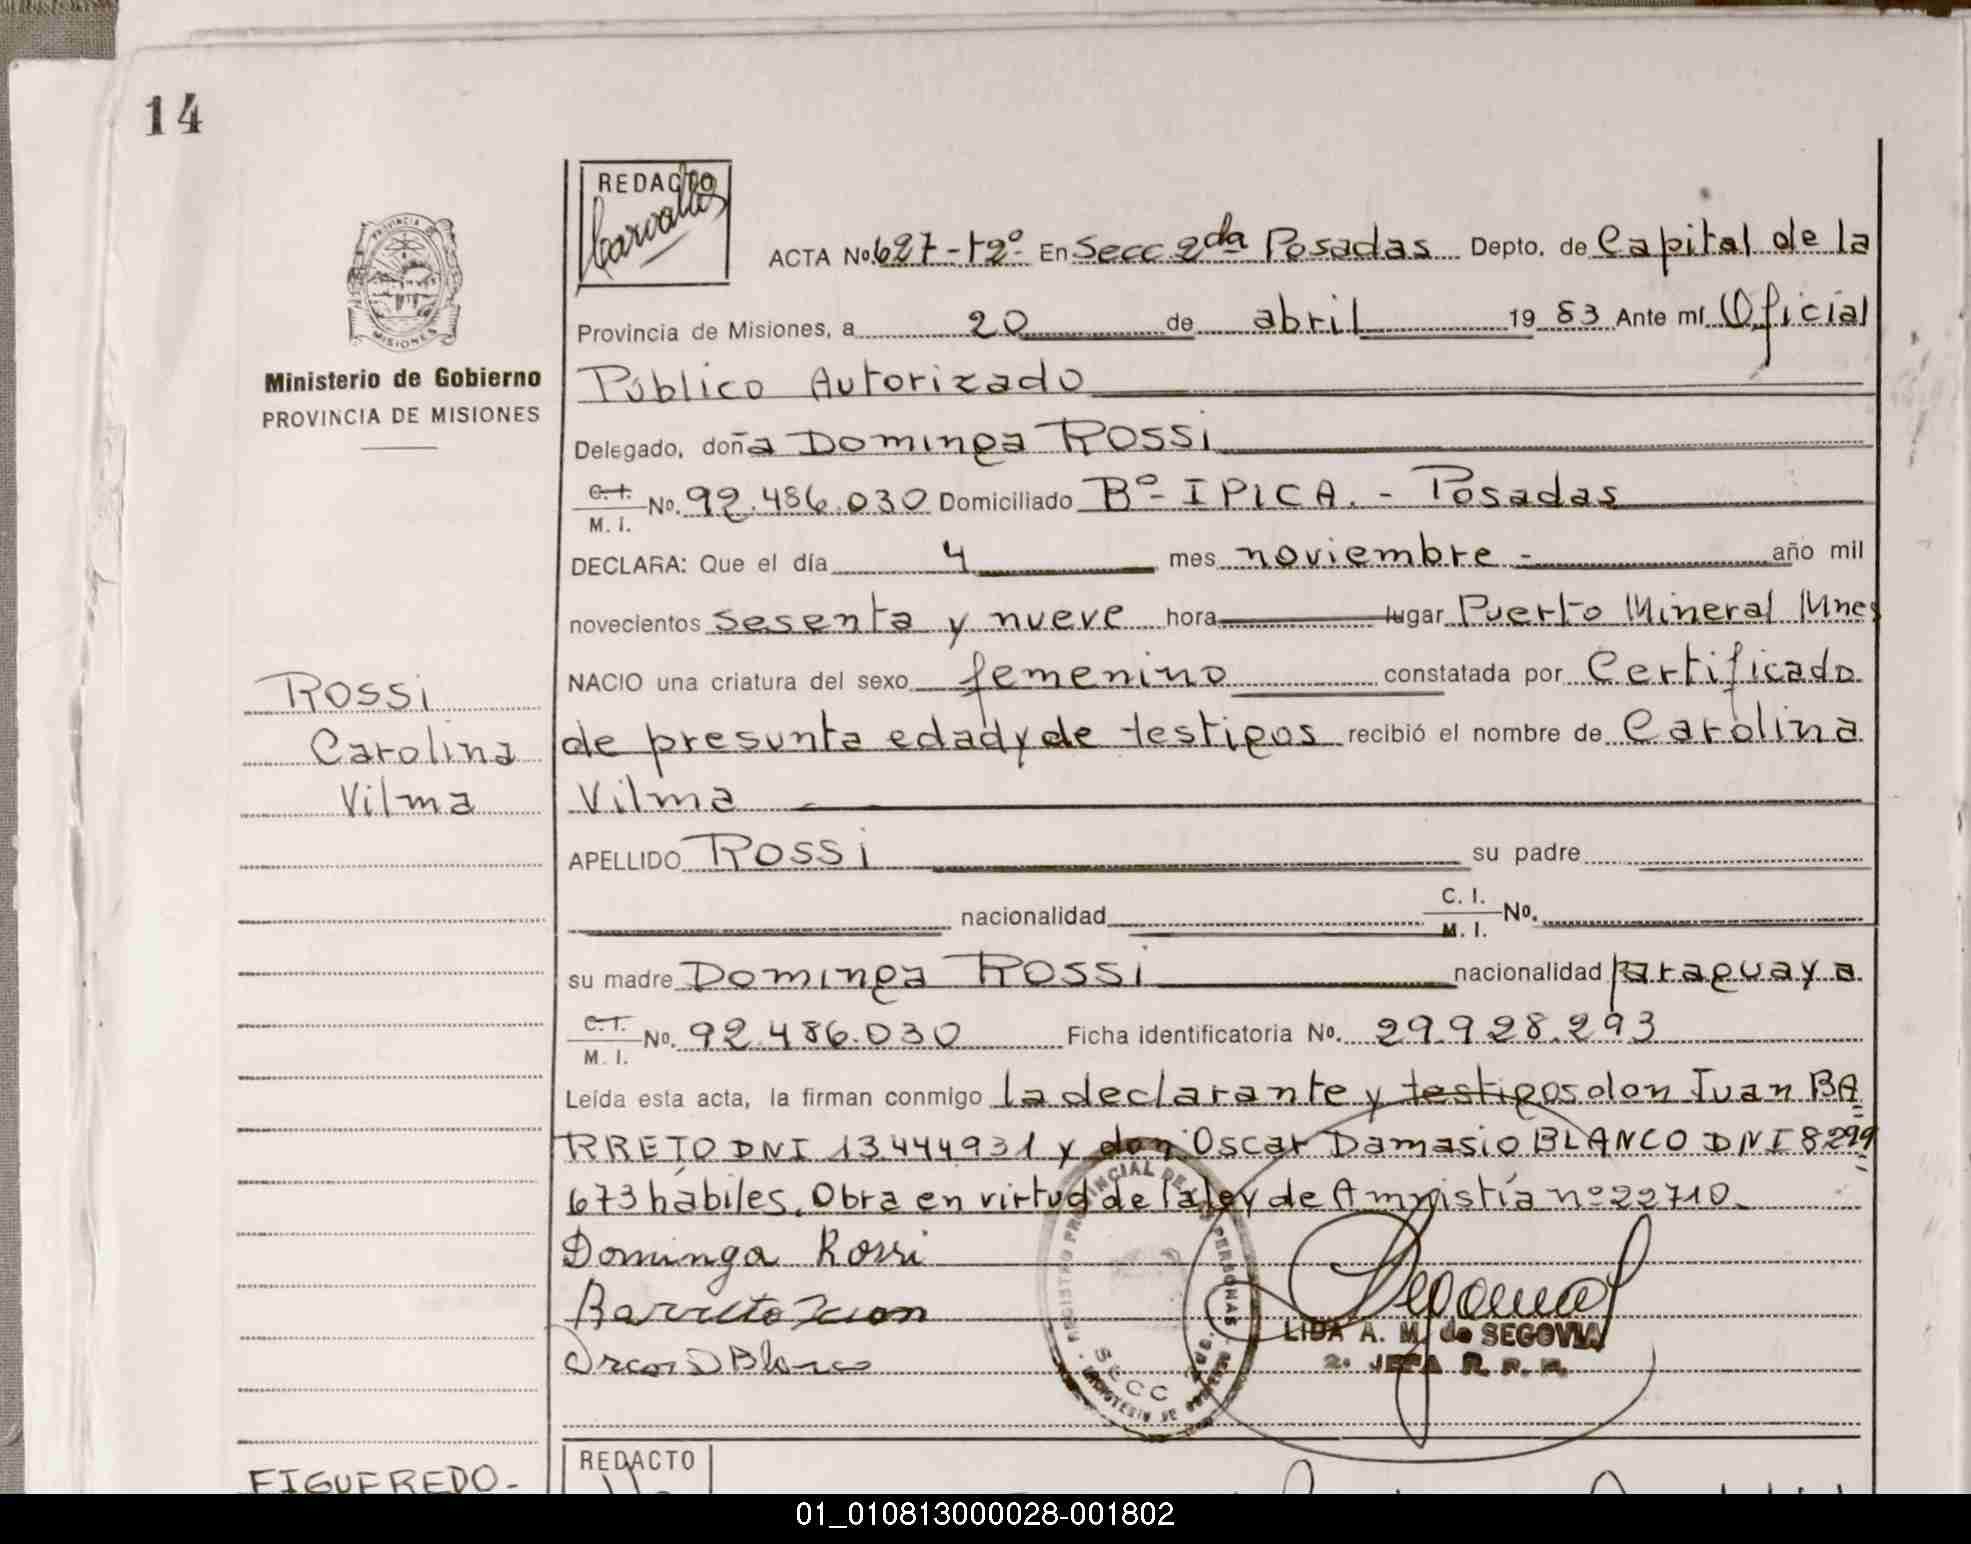 14
REDACTO
Carvallo
PROVINCIA DE
MISIONES
Ministerio de Gobierno
PROVINCIA DE MISIONES
ACTA No. 627-Tº2º En Secc 2da Posadas Depto. de Capital de la
Provincia de Misiones, a 20 de abril 1983 Ante mí Oficial
Público Autorizado
Delegado, doña Dominga Rossi
C.I. M. I. No. 92.486.030 Domiciliado Bº- IPICA. - Posadas
DECLARA: Que el día 4 mes noviembre - año mil
novecientos sesenta y nueve hora lugar Puerto Mineral Mnes
NACIO una criatura del sexo femenino constatada por Certificado
de presunta edad y de testigos recibió el nombre de Carolina
Vilma
Rossi
Carolina
Vilma
APELLIDO Rossi su padre
nacionalidad C. I. M. I. No.
su madre Dominga Rossi nacionalidad paraguaya
C.I. M. I. No. 92.486.030 Ficha identificatoria No. 29.928.293
Leída esta acta, la firman conmigo la declarante y testigos don Juan BA
RRETO DNI 13.444.931 y don Oscar Damasio BLANCO DNI 8.299
673 hábiles. Obra en virtud de la ley de Amnistía nº 22710.
Dominga Rossi
Barreto Juan
Oscar D Blanco
REGISTRO PROVINCIAL DE LAS PERSONAS
SECC 2da
MINISTERIO DE GOBIERNO
LIDA A. M. de SEGOVIA
2º JEFA R. P. P.
REDACTO
FIGUEREDO-
01_010813000028-001802